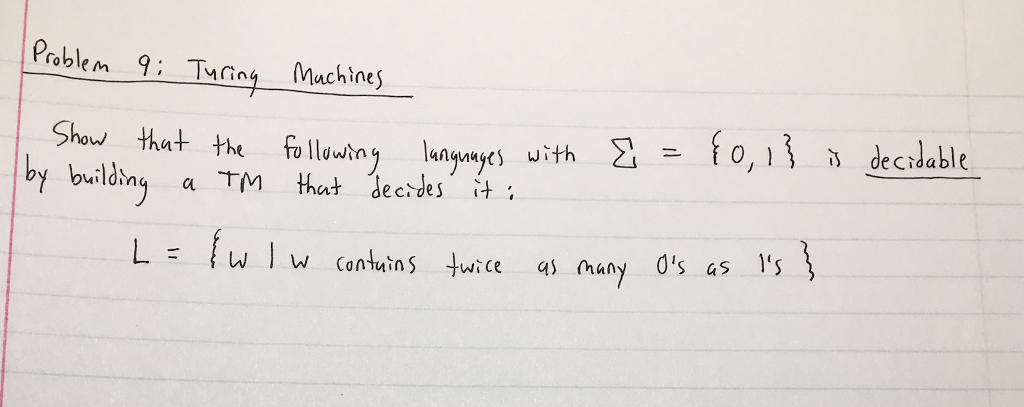 Problem 9: Turing Machines
Show that the following languages with Σ = {0,1} is decidable
by building a TM that decides it:
L = {w | w contains twice as many 0's as 1's}